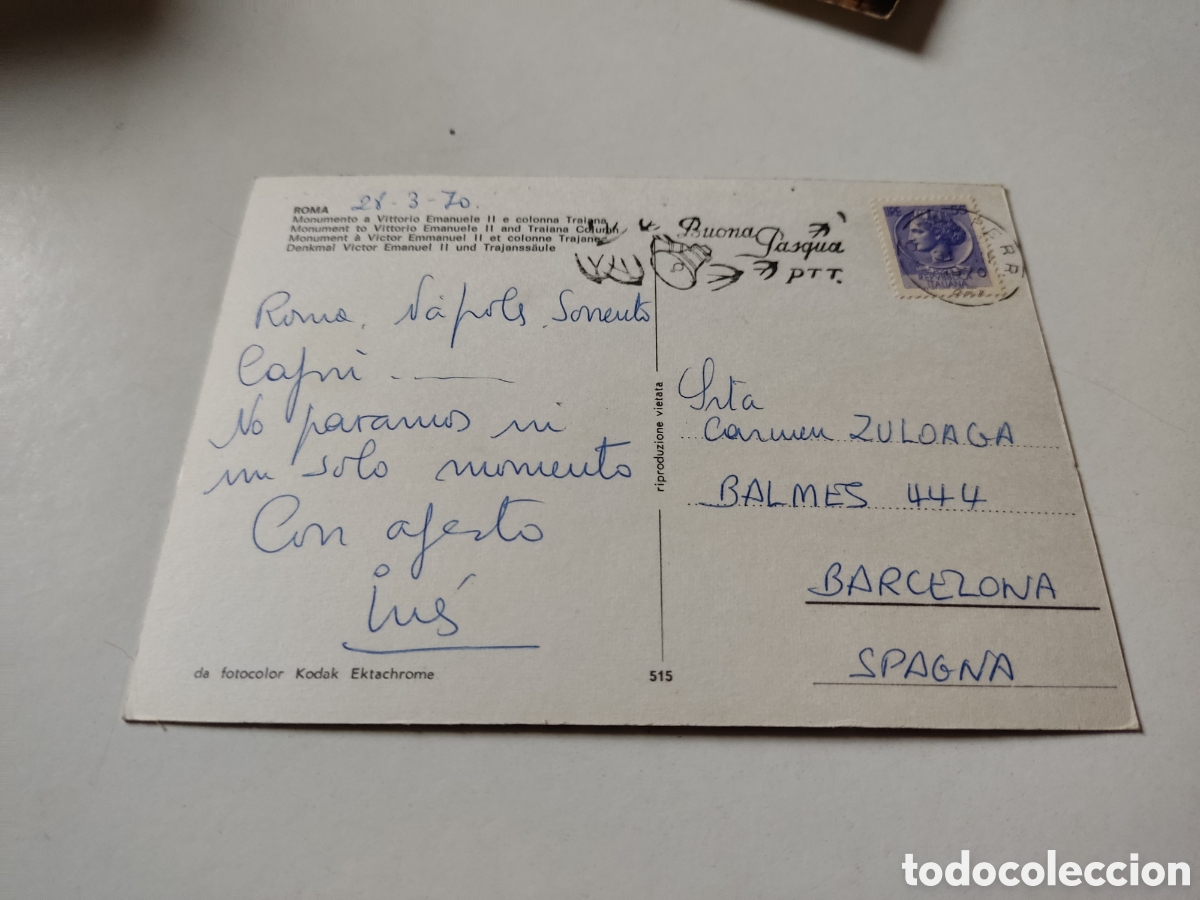 28-3-70.
ROMA
Monumento a Vittorio Emanuele II e colonna Traiana
Monument to Vittorio Emanuele II and Traiana Column
Monument à Victor Emmanuel II et colonne Trajane
Denkmal Victor Emanuel II und Trajanssäule
Buona Pasqua
PTT.
ITALIANA
Roma, Nápols, Sorrento
Capri.
No paramos ni
un solo momento
Con afecto
Inés
da fotocolor Kodak Ektachrome
515
riproduzione vietata
Srta
Carmen ZULOAGA
BALMES 444
BARCELONA
SPAGNA
todocoleccion